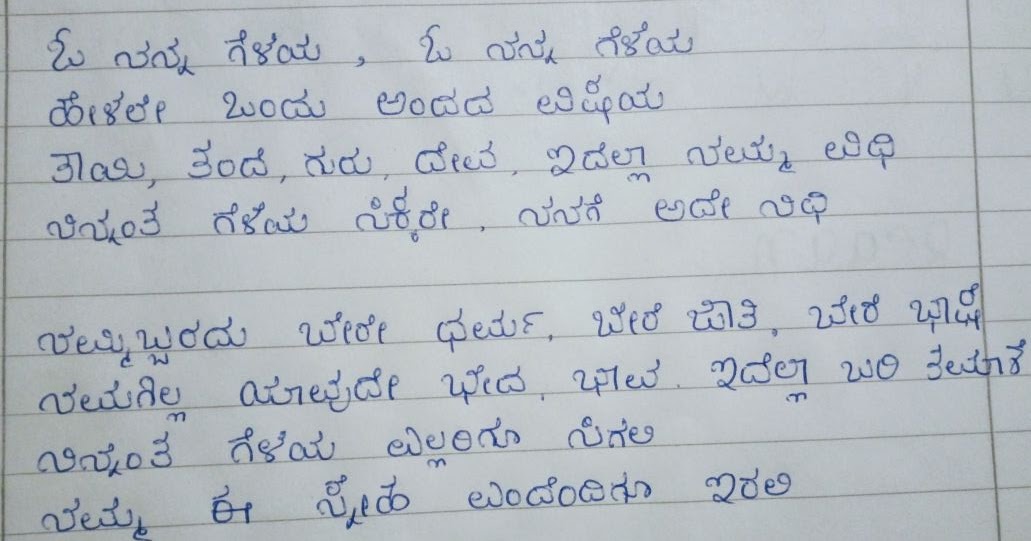 ಓ ನನ್ನ ಗೆಳೆಯ, ಓ ನನ್ನ ಗೆಳೆಯ
ಹೇಳಲೇ ಒಂದು ಅಂದದ ವಿಷೆಯ
ತಾಯಿ, ತಂದೆ, ಗುರು, ದೇವ, ಇದೆಲ್ಲಾ ನಮ್ಮ ವಿಧಿ
ನಿನ್ನಂತ ಗೆಳೆಯ ಸಿಕ್ಕರೇ, ನನಗೆ ಅದೇ ನಿಧಿ
ನಮ್ಮಿಬ್ಬರದು ಬೇರೇ ಧರ್ಮ, ಬೇರೆ ಜಾತಿ, ಬೇರೆ ಭಾಷೆ
ನಮಗಿಲ್ಲ ಯಾವುದೇ ಭೇದ, ಭಾವ. ಇದೆಲ್ಲಾ ಬರಿ ತಮಾಶೆ
ನಿನ್ನಂತ ಗೆಳೆಯ ಎಲ್ಲರಿಗೂ ಸಿಗಲಿ
ನಮ್ಮ ಈ ಸ್ನೇಹ ಎಂದೆಂದಿಗೂ ಇರಲಿ